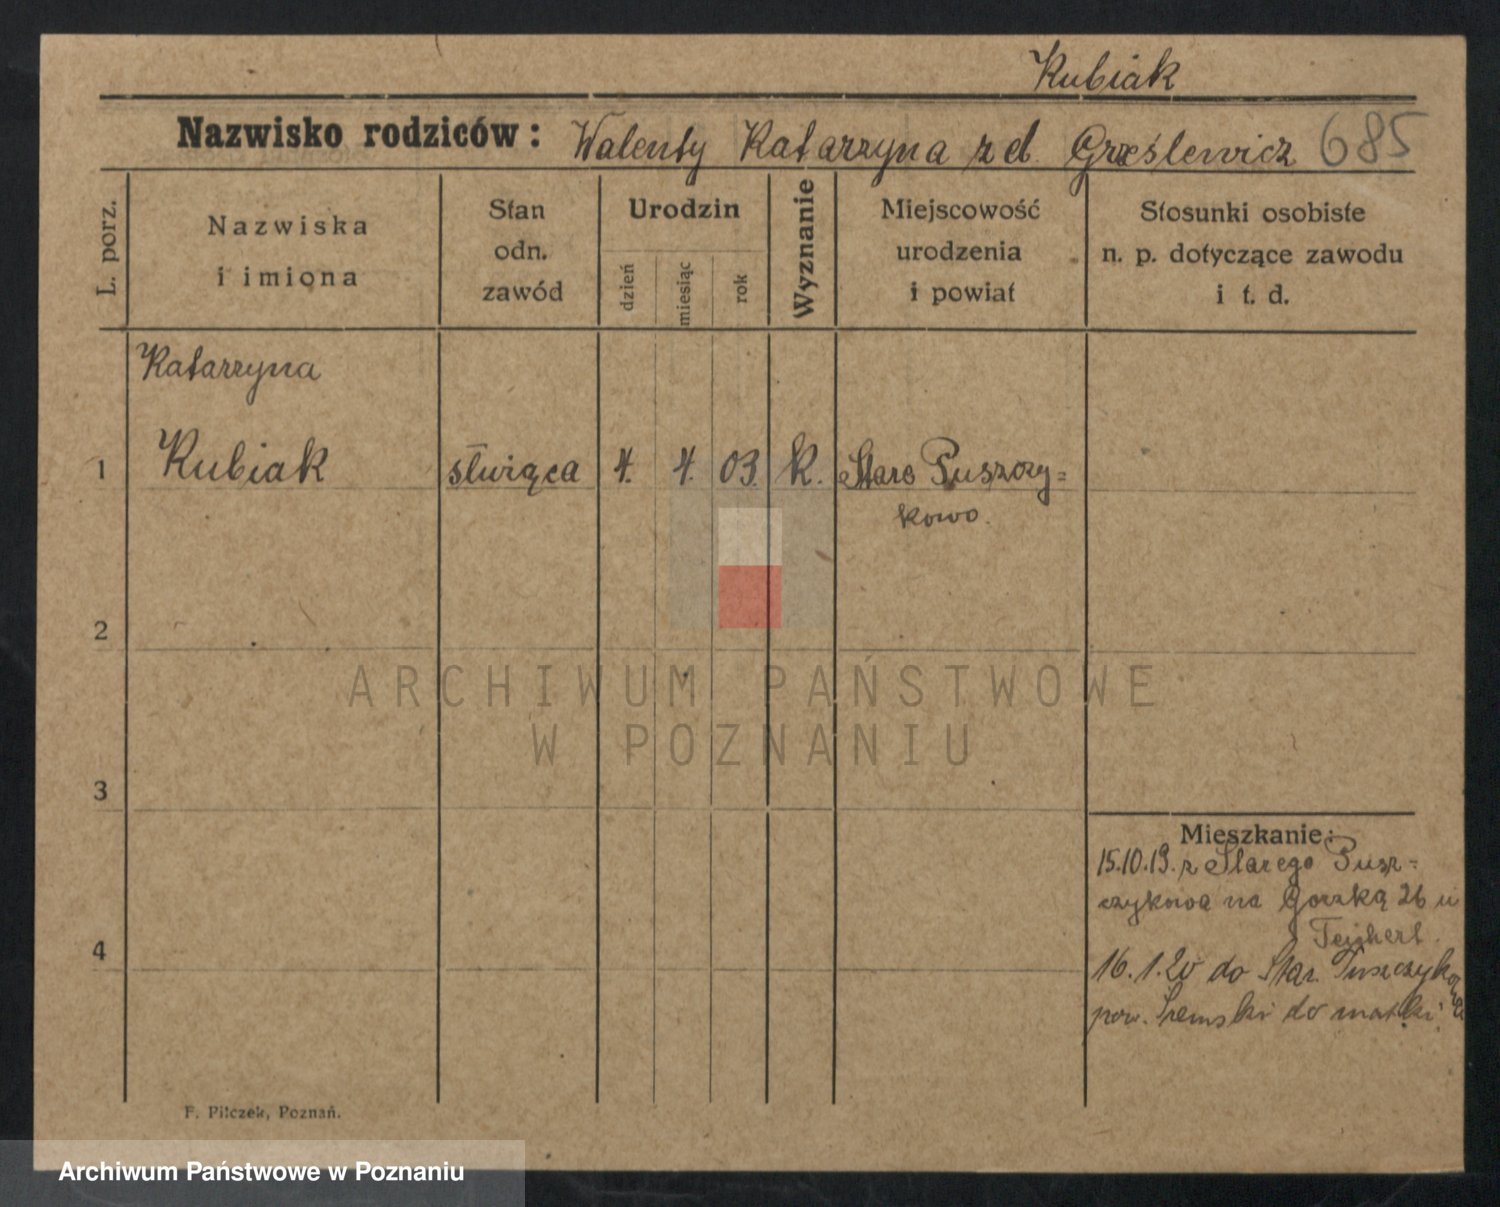 Kubiak
Nazwisko rodziców: Walenty Katarzyna z d. Grześlewicz 685
L. porz.
Nazwiska
i imiona
Stan
odn.
zawód
Urodzin
dzień
miesiąc
rok
Wyznanie
Miejscowość
urodzenia
i powiat
Stosunki osobiste
n. p. dotyczące zawodu
i t. d.
Katarzyna
1 Kubiak służąca 4. 4. 03. k. Stare Puszczy=
kowo.
2
ARCHIWUM PAŃSTWOWE
W POZNANIU
3
Mieszkanie:
15.10.19. z Starego Pusz=
czykowa na Gorzką 26 u
4
16.1.20 do Star. Puszczykowa
pow. Śremski do matki
F. Pilczek, Poznań.
Archiwum Państwowe w Poznaniu